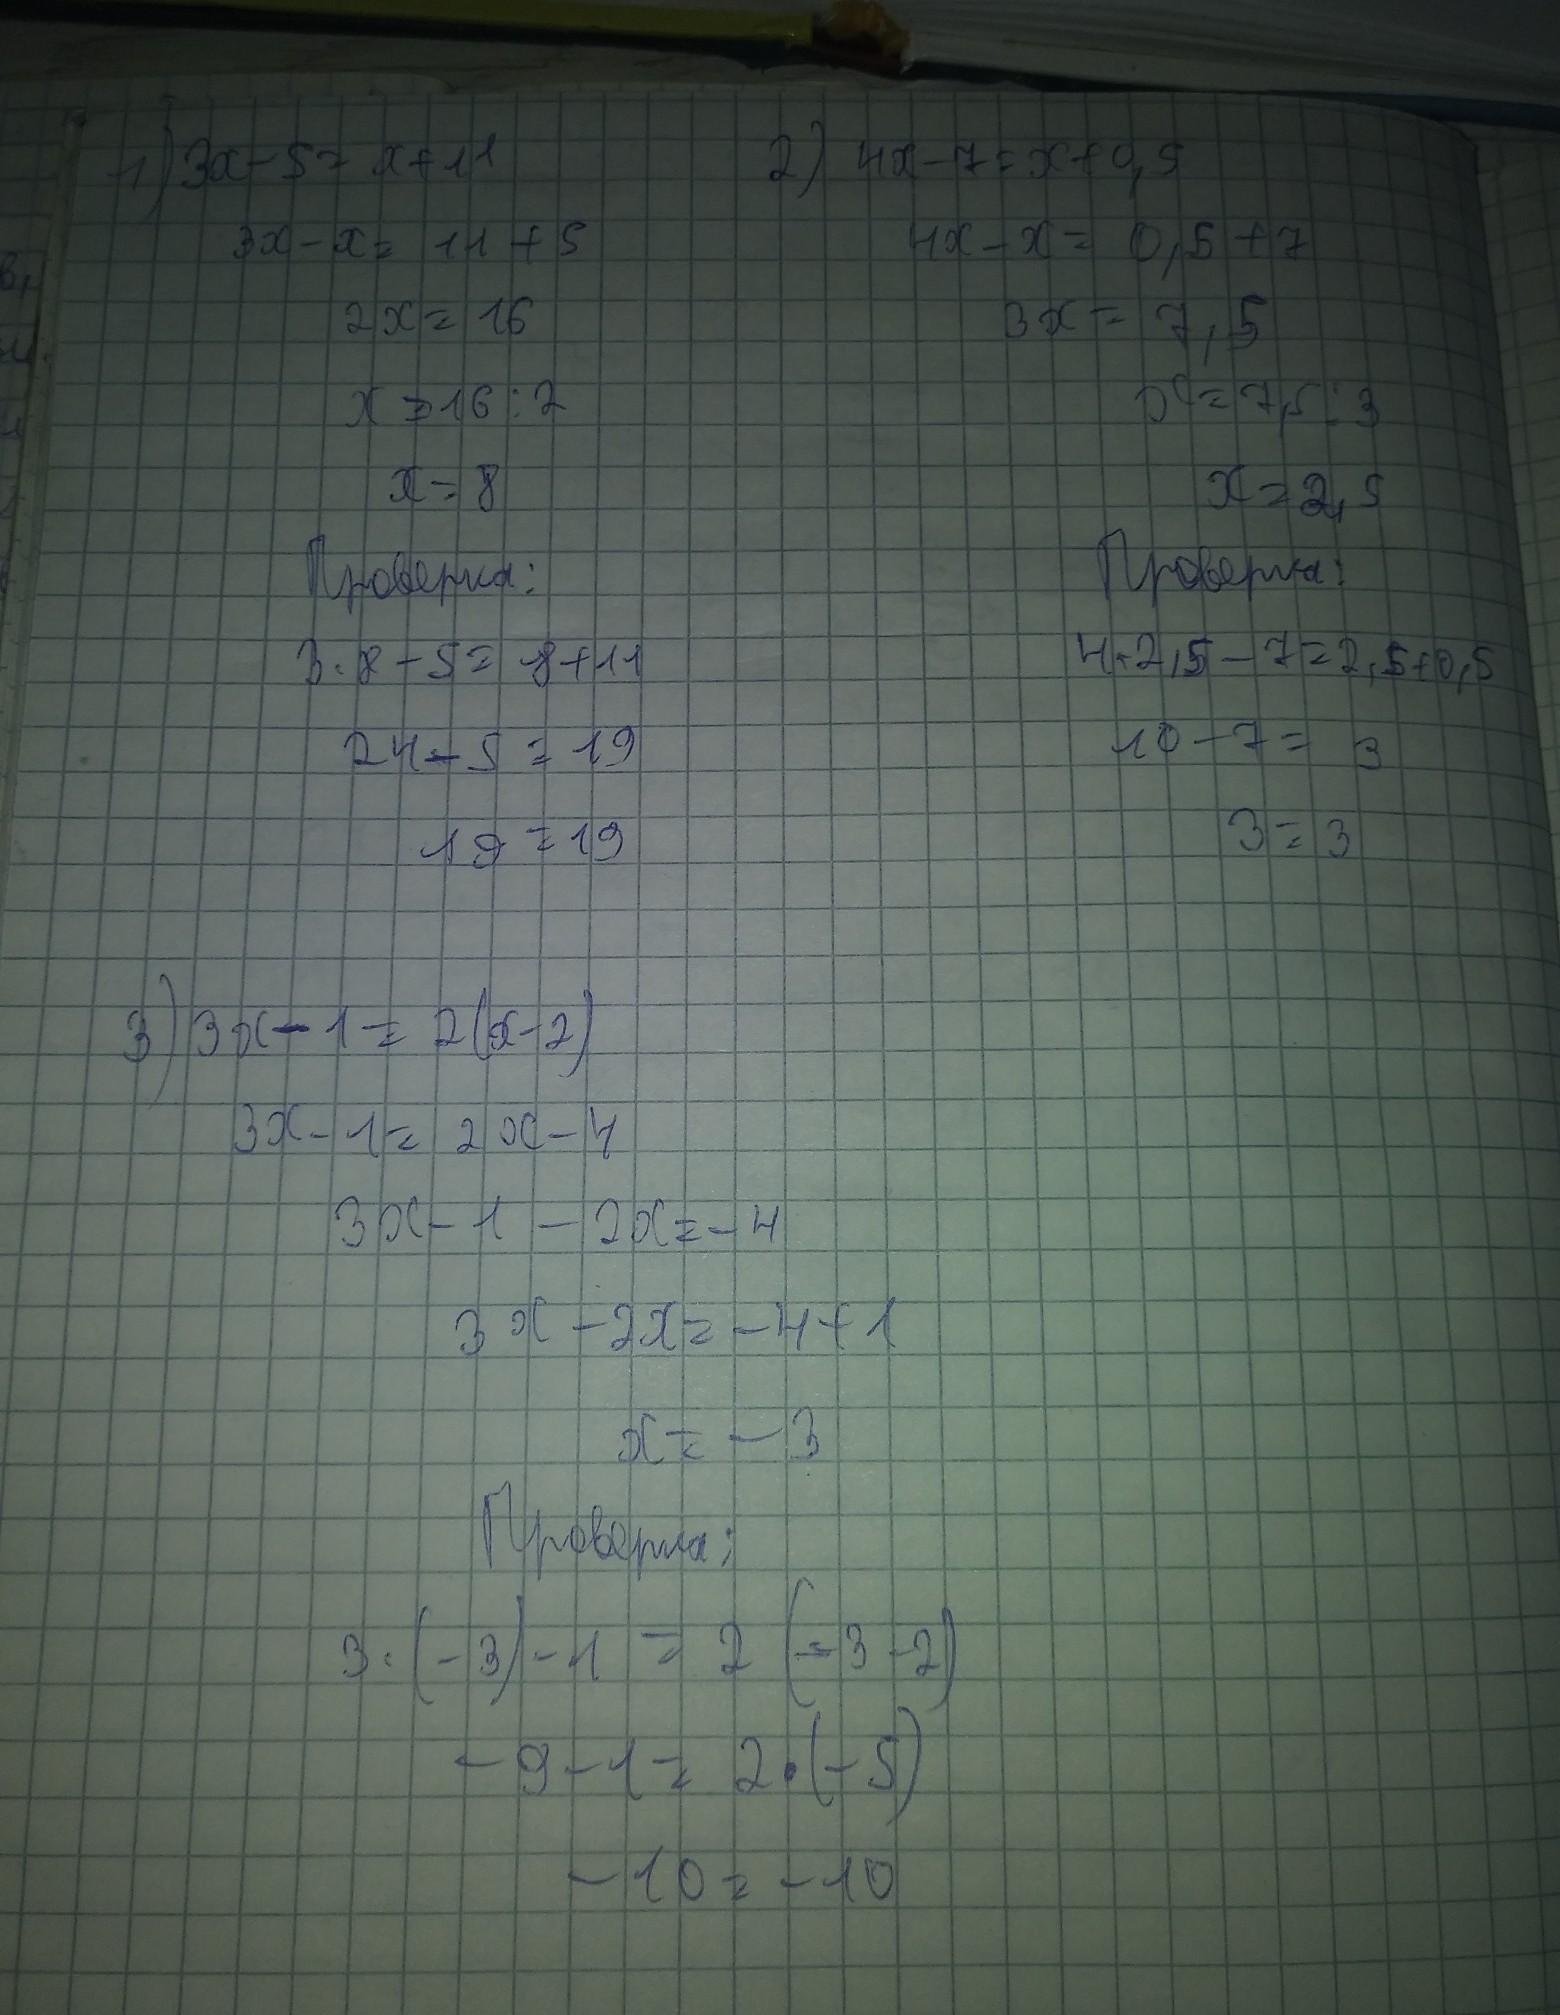 1) 3x - 5 = x + 11
3x - x = 11 + 5
2x = 16
x = 16 : 2
x = 8
Проверка:
3 · 8 - 5 = 8 + 11
24 - 5 = 19
19 = 19
2) 4x - 7 = x + 0,5
4x - x = 0,5 + 7
3x = 7,5
x = 7,5 : 3
x = 2,5
Проверка:
4 · 2,5 - 7 = 2,5 + 0,5
10 - 7 = 3
3 = 3
3) 3x - 1 = 2(x - 2)
3x - 1 = 2x - 4
3x - 1 - 2x = - 4
3x - 2x = - 4 + 1
x = - 3
Проверка:
3 · (- 3) - 1 = 2 (- 3 - 2)
- 9 - 1 = 2 · (- 5)
- 10 = - 10